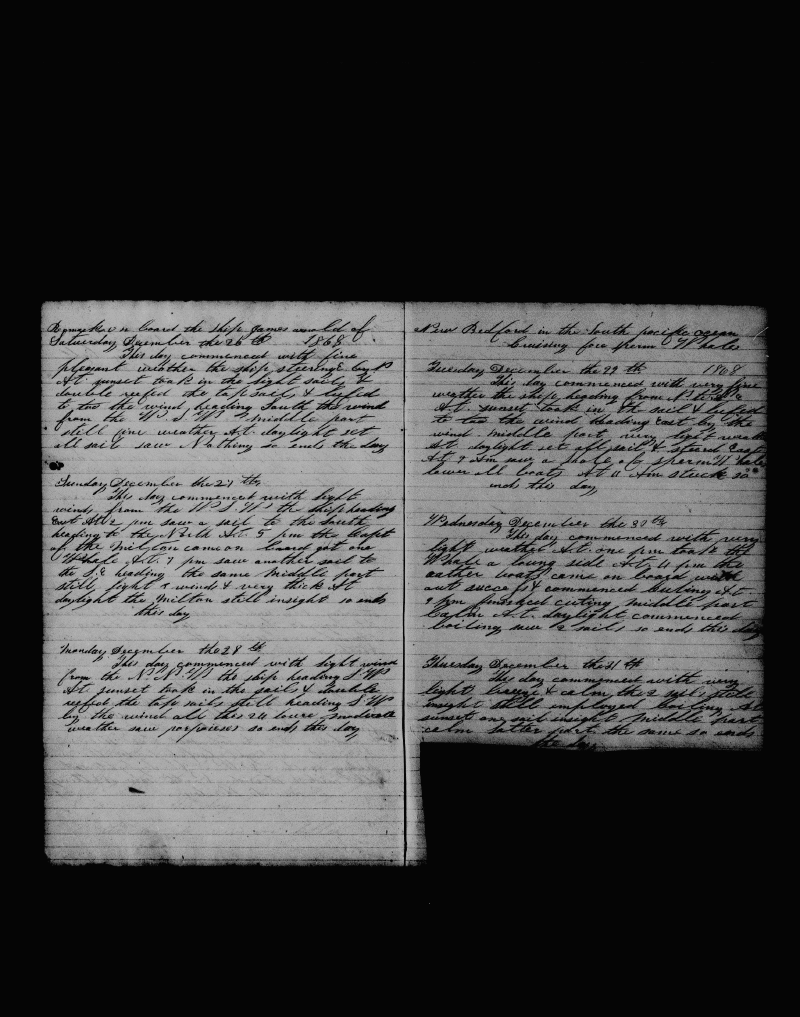 board the ship James arnold of
Saturday December the 26 th 1868
This day commenced with fine
pleasant weather the ship steering by
At sunset took in the light sails &
double reefed the topsails & luffed
to too the wind heading South the wind
from the W. S. W. middle part
still fine weather At. daylight set
all sail saw Nothing so ends the day
Sunday December the 27 th
This day commenced with light
winds from the W S. W the ship heading
East At 2 pm saw a sail to the South
heading to the North At. 5 pm the Capt
of the Milton came on board got one
Whale At. 7 pm saw another sail to
the S. E heading the same middle part
still light winds & very thick At
daylight the Milton still insight so ends
this day
Monday December the 28 th
This day commenced with light wind
from the N. N. W the ship heading S. W
At sunset took in the sails & double
reefed the top sails still heading S W
by the wind all thes 24 hours moderate
weather saw porpoises so ends this day
New Bedford in the South pacific ocean
Cruising for sperm Whales
Tuesday December the 29 th 1868
This day commenced with very fine
weather the ship heading from
At. sunset took in the sail & luffed
to too the wind heading East by the
wind middle part very light
At daylight set all sail & steard East
At 9 Am saw a shole of sperm Whales
lower all boats At 11 Am struck so
ends this day
Wednesday December the 30 th
This day commenced with very
light weather At. one pm took the
Whale a long side At. 4 pm the
other boats came on board with
out success & commenced cuting At
9 pm finished cuting middle part
Calm At. daylight commenced
boiling saw 2 sails so ends this day
Thursday December the 31 th
This day commenced with very
light breeze & calm the 2 sails still
insight still employed boiling At
sunset one sail insight middle part
calm latter part the same so ends
the day